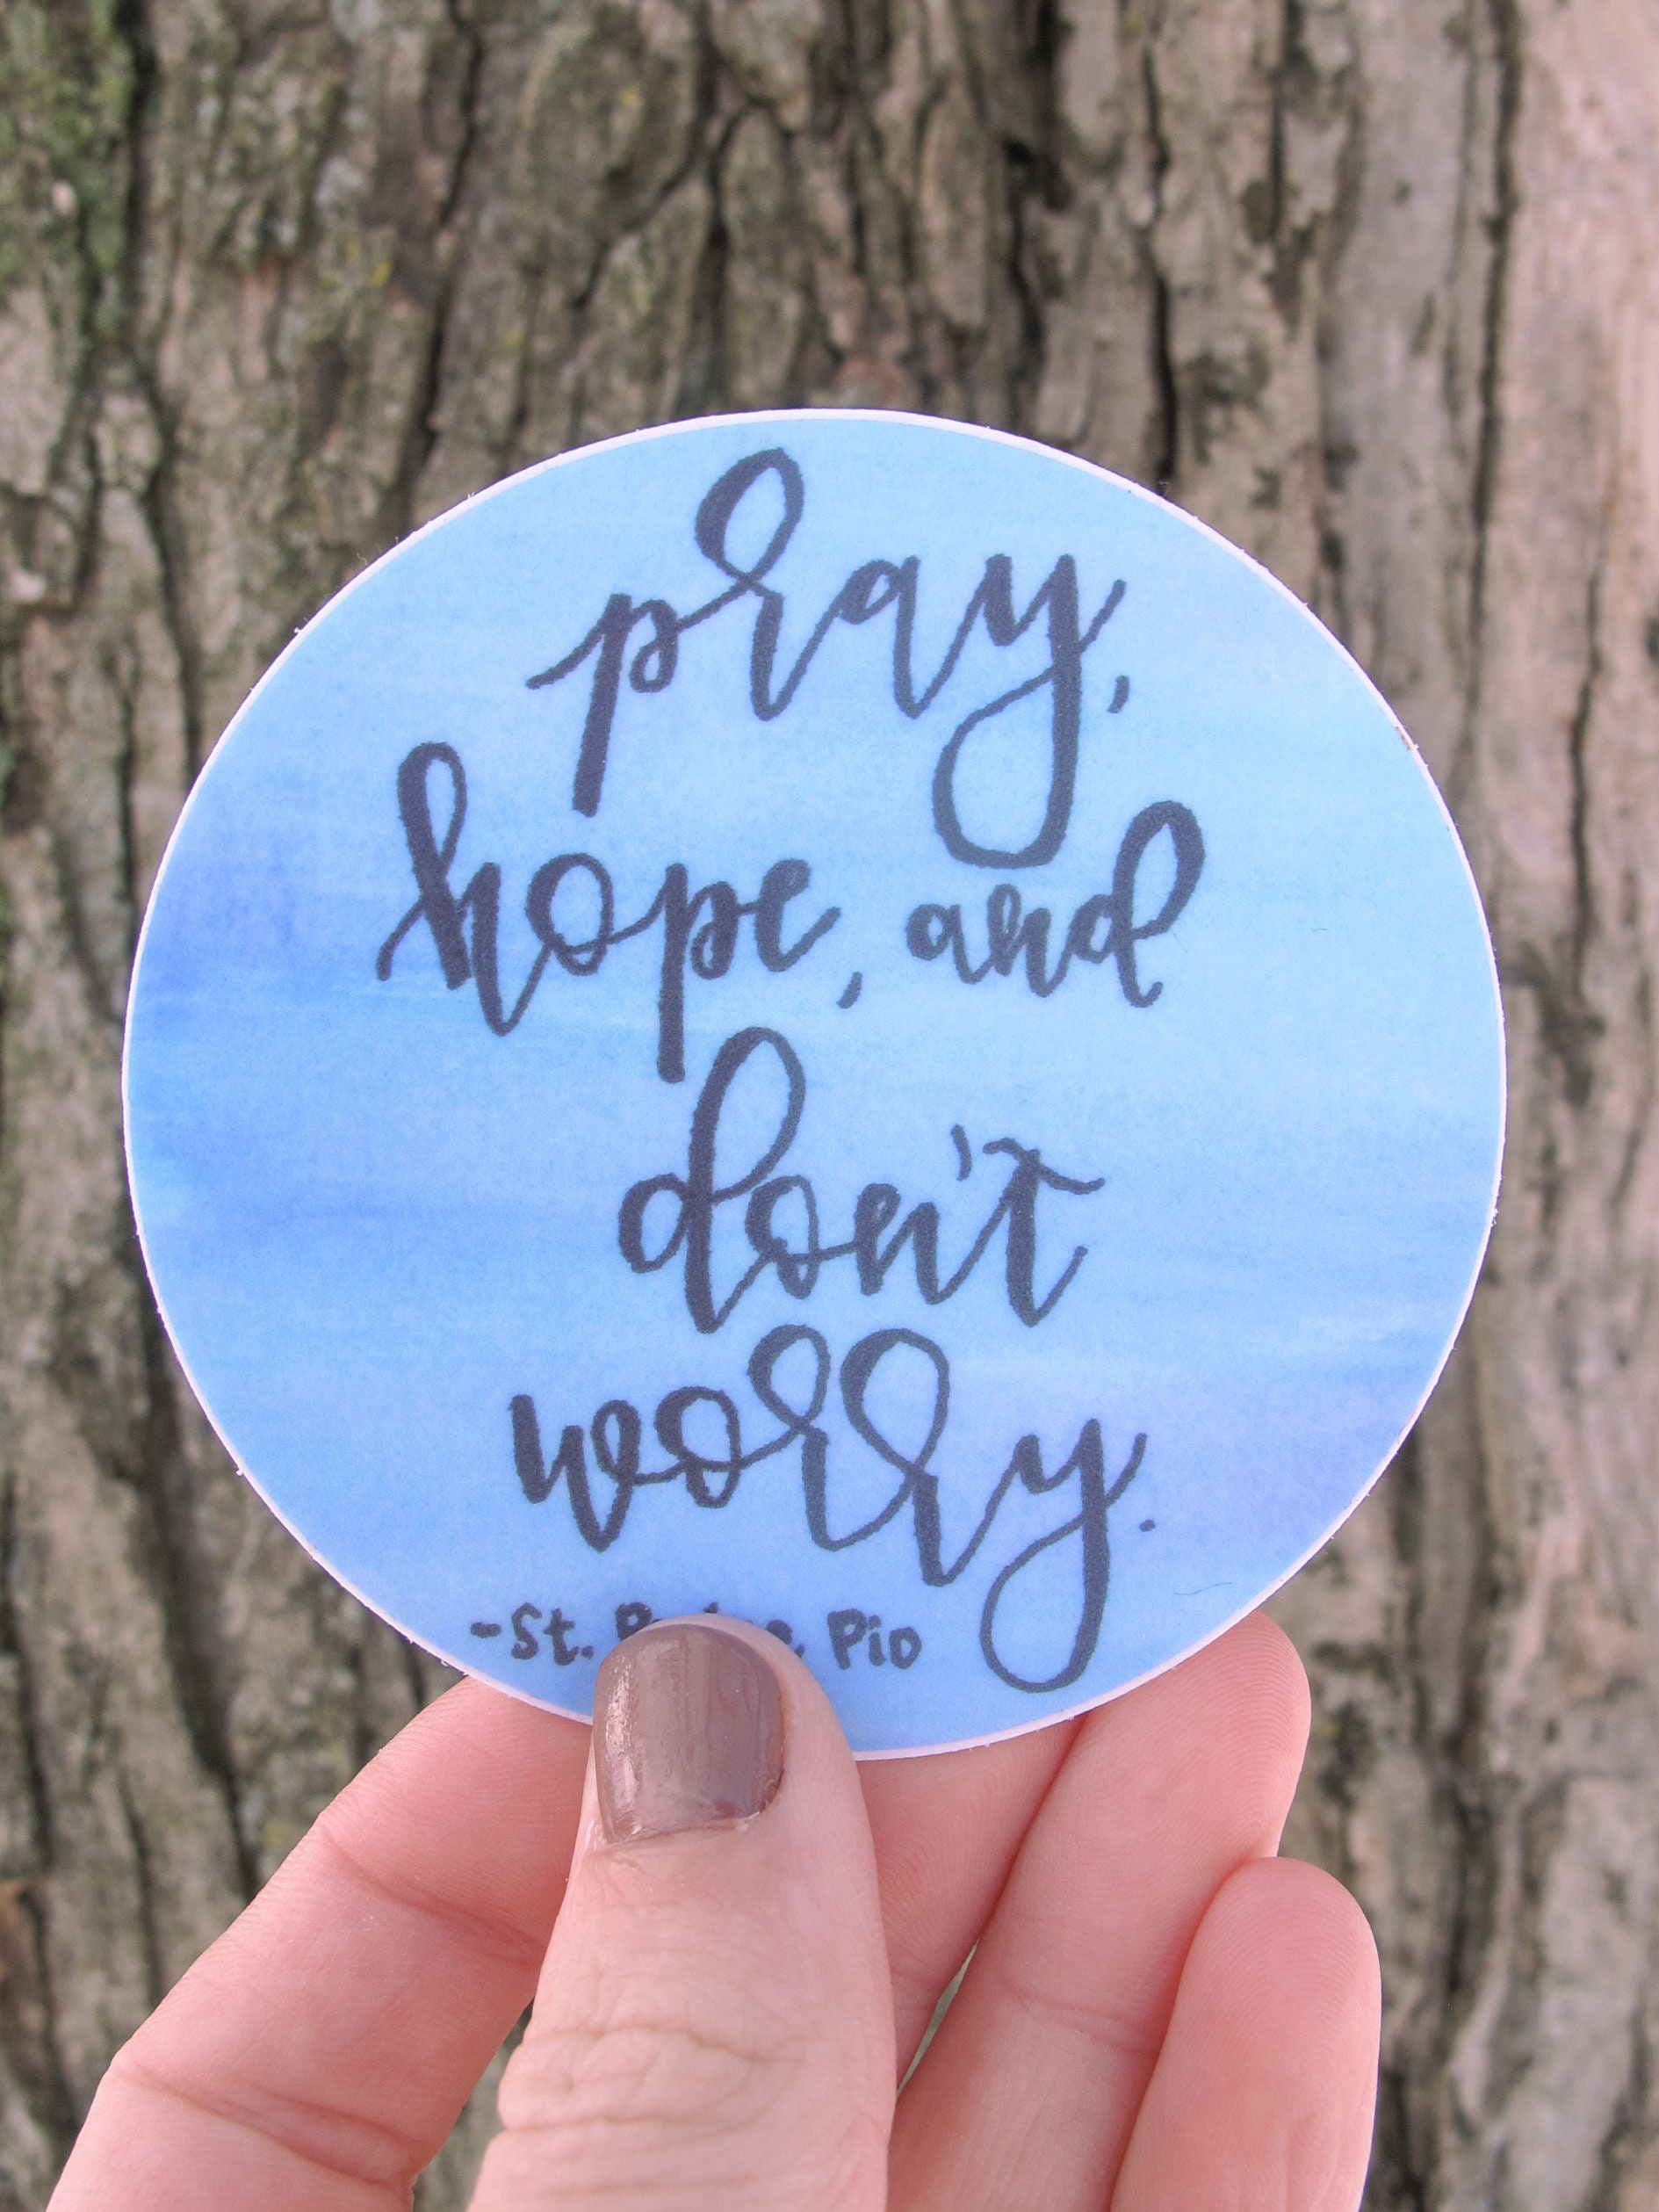 pray,
hope, and
don't
worry.
-St. Pio